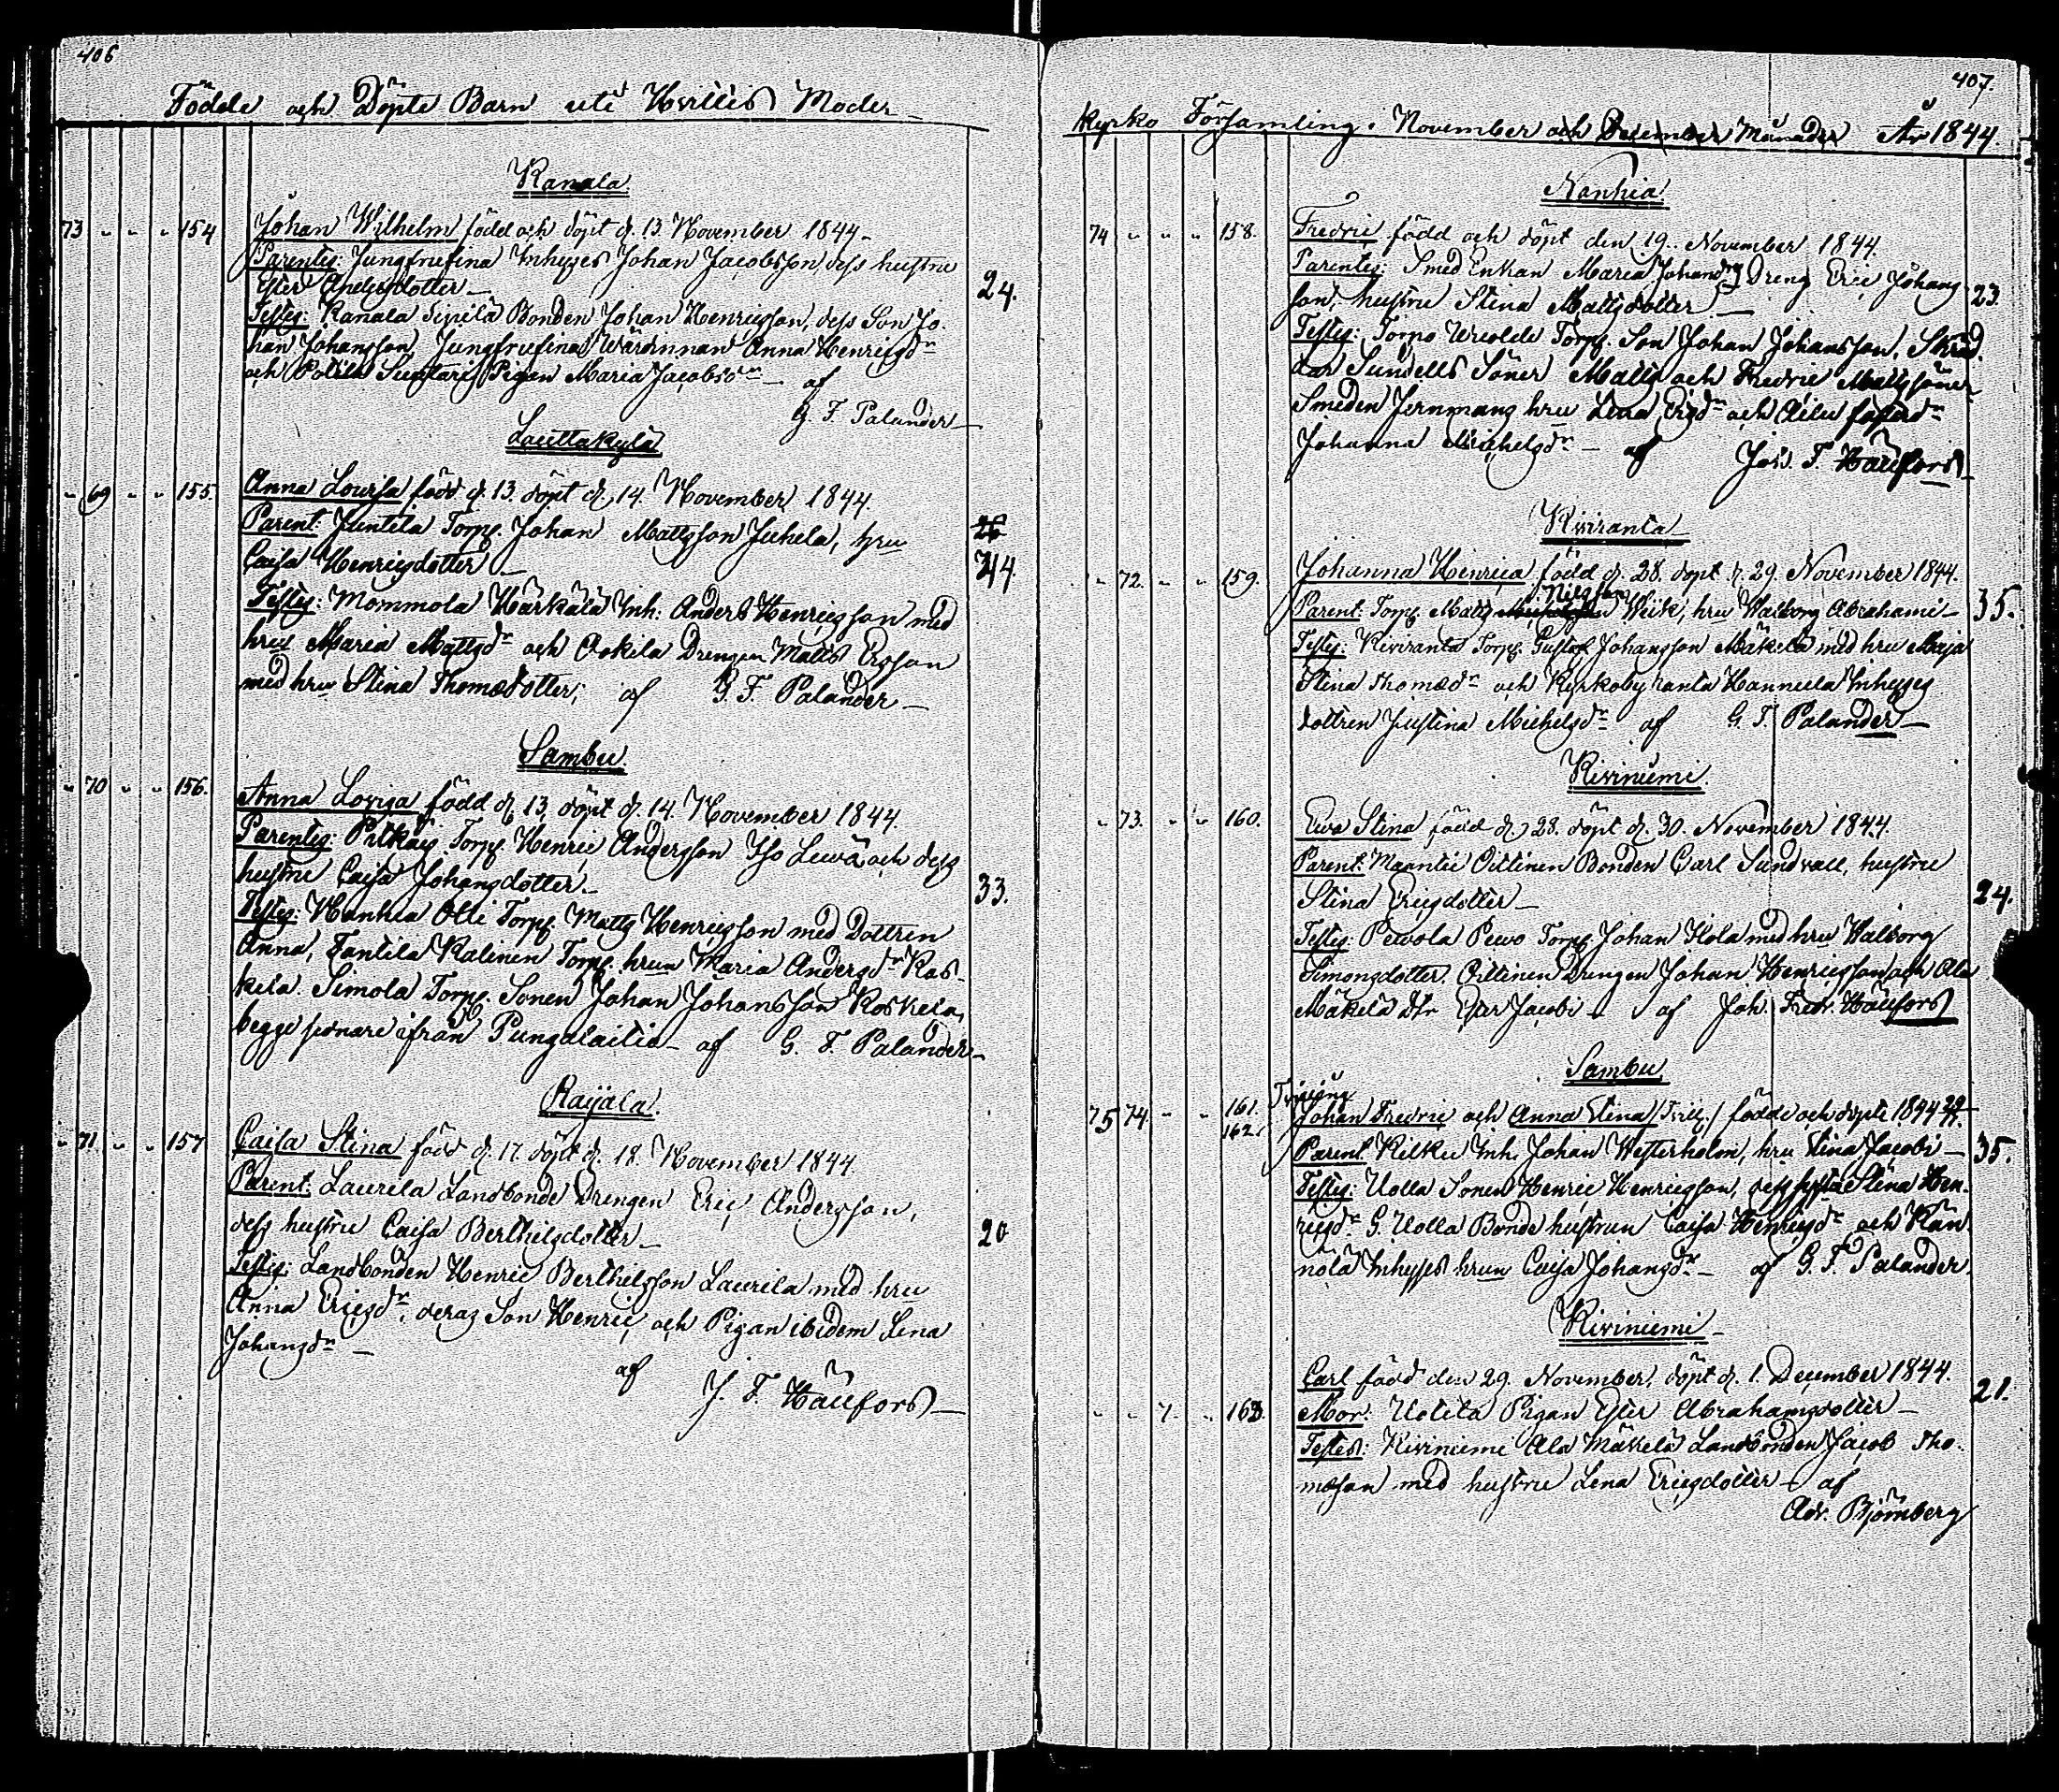 406
Födde och Döpte Barn uti Hvittis Moder
Kanala
73 " " " 154 Johan Wilhelm född och döpt d. 13 November 1844.
Parentes: Jungfrufina Inhyses Johan Jacobsson, dess hustru
Ester Andersdotter 24.
Testes: Kanala Sipilä Bonden Johan Henricsson, dess Son Jo-
han Johansson, Jungfrufina Wärdinnan Anna Henricsdr
och Potila Suntari Pigan Maria Jacobsdr af
G. F. Palander
Lauttakylä
" 69 " " 155. Anna Lovisa född d. 13. döpt d. 14. November 1844.
Parent: Juntila Torp. Johan Mattsson Juhela, hru 26
Caisa Henricsdotter 44.
Testes: Mommola Härkälä Inh. Anders Henricsson med
hru Maria Mattsdr och Askila Drengen Matts Ersson
med hru Stina Thomædotter; af G. F. Palander
Sambu
" 70 " " 156. Anna Lovisa född d. 13, döpt d. 14. November 1844.
Parentes: Pitkäis Torp. Henric Andersson Iso Lewä och dess
hustru Caisa Johansdotter 33.
Testes: Hanhia Olli Torp. Matts Henricsson med Dottren
Anna, Tantila Kalinen Torp. hrun Maria Andersdr Kos-
kela. Simola Torp. Sonen Johan Johansson Koskela,
begge sednare ifrån Pungalaitio af G. F. Palander
Raijala.
" 71 " " 157 Caisa Stina född d. 17. döpt d. 18. November 1844.
Parent: Laurila Landbonde Drengen Eric Andersson,
dess hustru Caisa Berthilsdotter 20
Testes: Landbonden Henric Berthilsson Laurila med hru
Anna Ericsdr, deras Son Henric och Pigan ibidem Lena
Johansdr
af
J. F. Häufors
407.
kyrko Församling i November och December Månader År 1844.
Nanhia.
74 " " " 158. Fredric född och döpt den 19. November 1844.
Parentes: Smed Enkan Maria Dreng Eric Johans-
son, hustru Stina Mattsdotter 23.
Testes: Torp. Son Johan Johansson, Skräd-
dar Sundells Söner Matts och Fredric Mattssöner
Smeden Jernmans hru Lena Ersdr och
Johanna Michelsdr af Joh. F. Häufors
Kiviranta
" 72. " " 159. Johanna Henrica född d. 28. döpt d. 29. November 1844.
Nilsson
Parent: Torp. Matts Weik, hru Walborg Abrahami 35.
Testes: Kiviranta Torp. Gustaf Johansson Mäkelä med hru Maja
Stina Thomædr och Kyrkoby ranta Hannula Inhyses
dottren Justina Michelsdr af G. F. Palander
Kiviniemi
" 73. " " 160. Eva Stina född d. 28. döpt d. 30. November 1844.
Parent: Maantie Oittinen Bonden Carl Sundvall, hustru
Stina Ericsdotter 24.
Testes: Pewola Pewo Torp. Johan Hola med hru Walborg
Simonsdotter. Oittinen Drengen Johan Henricsson och Ala
Mäkelä dtr Ester Jacobi af Joh. Fredr. Häufors
Sambu
75 74. " " 161. 162. Johan Fredric och Anna Stina (Trill.) födde och döpte 1844 29/11.
Parent. Kilku Inh. Johan Westerholm, hru Stina Jacobi 35.
Testes: Uolla Sonen Henric Henricsson, dess syster Stina Hen-
ricsdr G. Uolla Bonde hustrun Caisa Henricsdr och Kän-
nölä Inhyses hrun Caisa Johansdr af G. F. Palander.
Kiviniemi
" " 7. " 163. Carl född den 29. November, döpt d. 1. December 1844. 21.
Mor: Uotila Pigan Ester Abrahamsdotter
Testes: Kiviniemi Ala Mäkelä Landbonden Jacob Tho-
mæson med hustru Lena Ericsdotter af
Adv. Björnberg